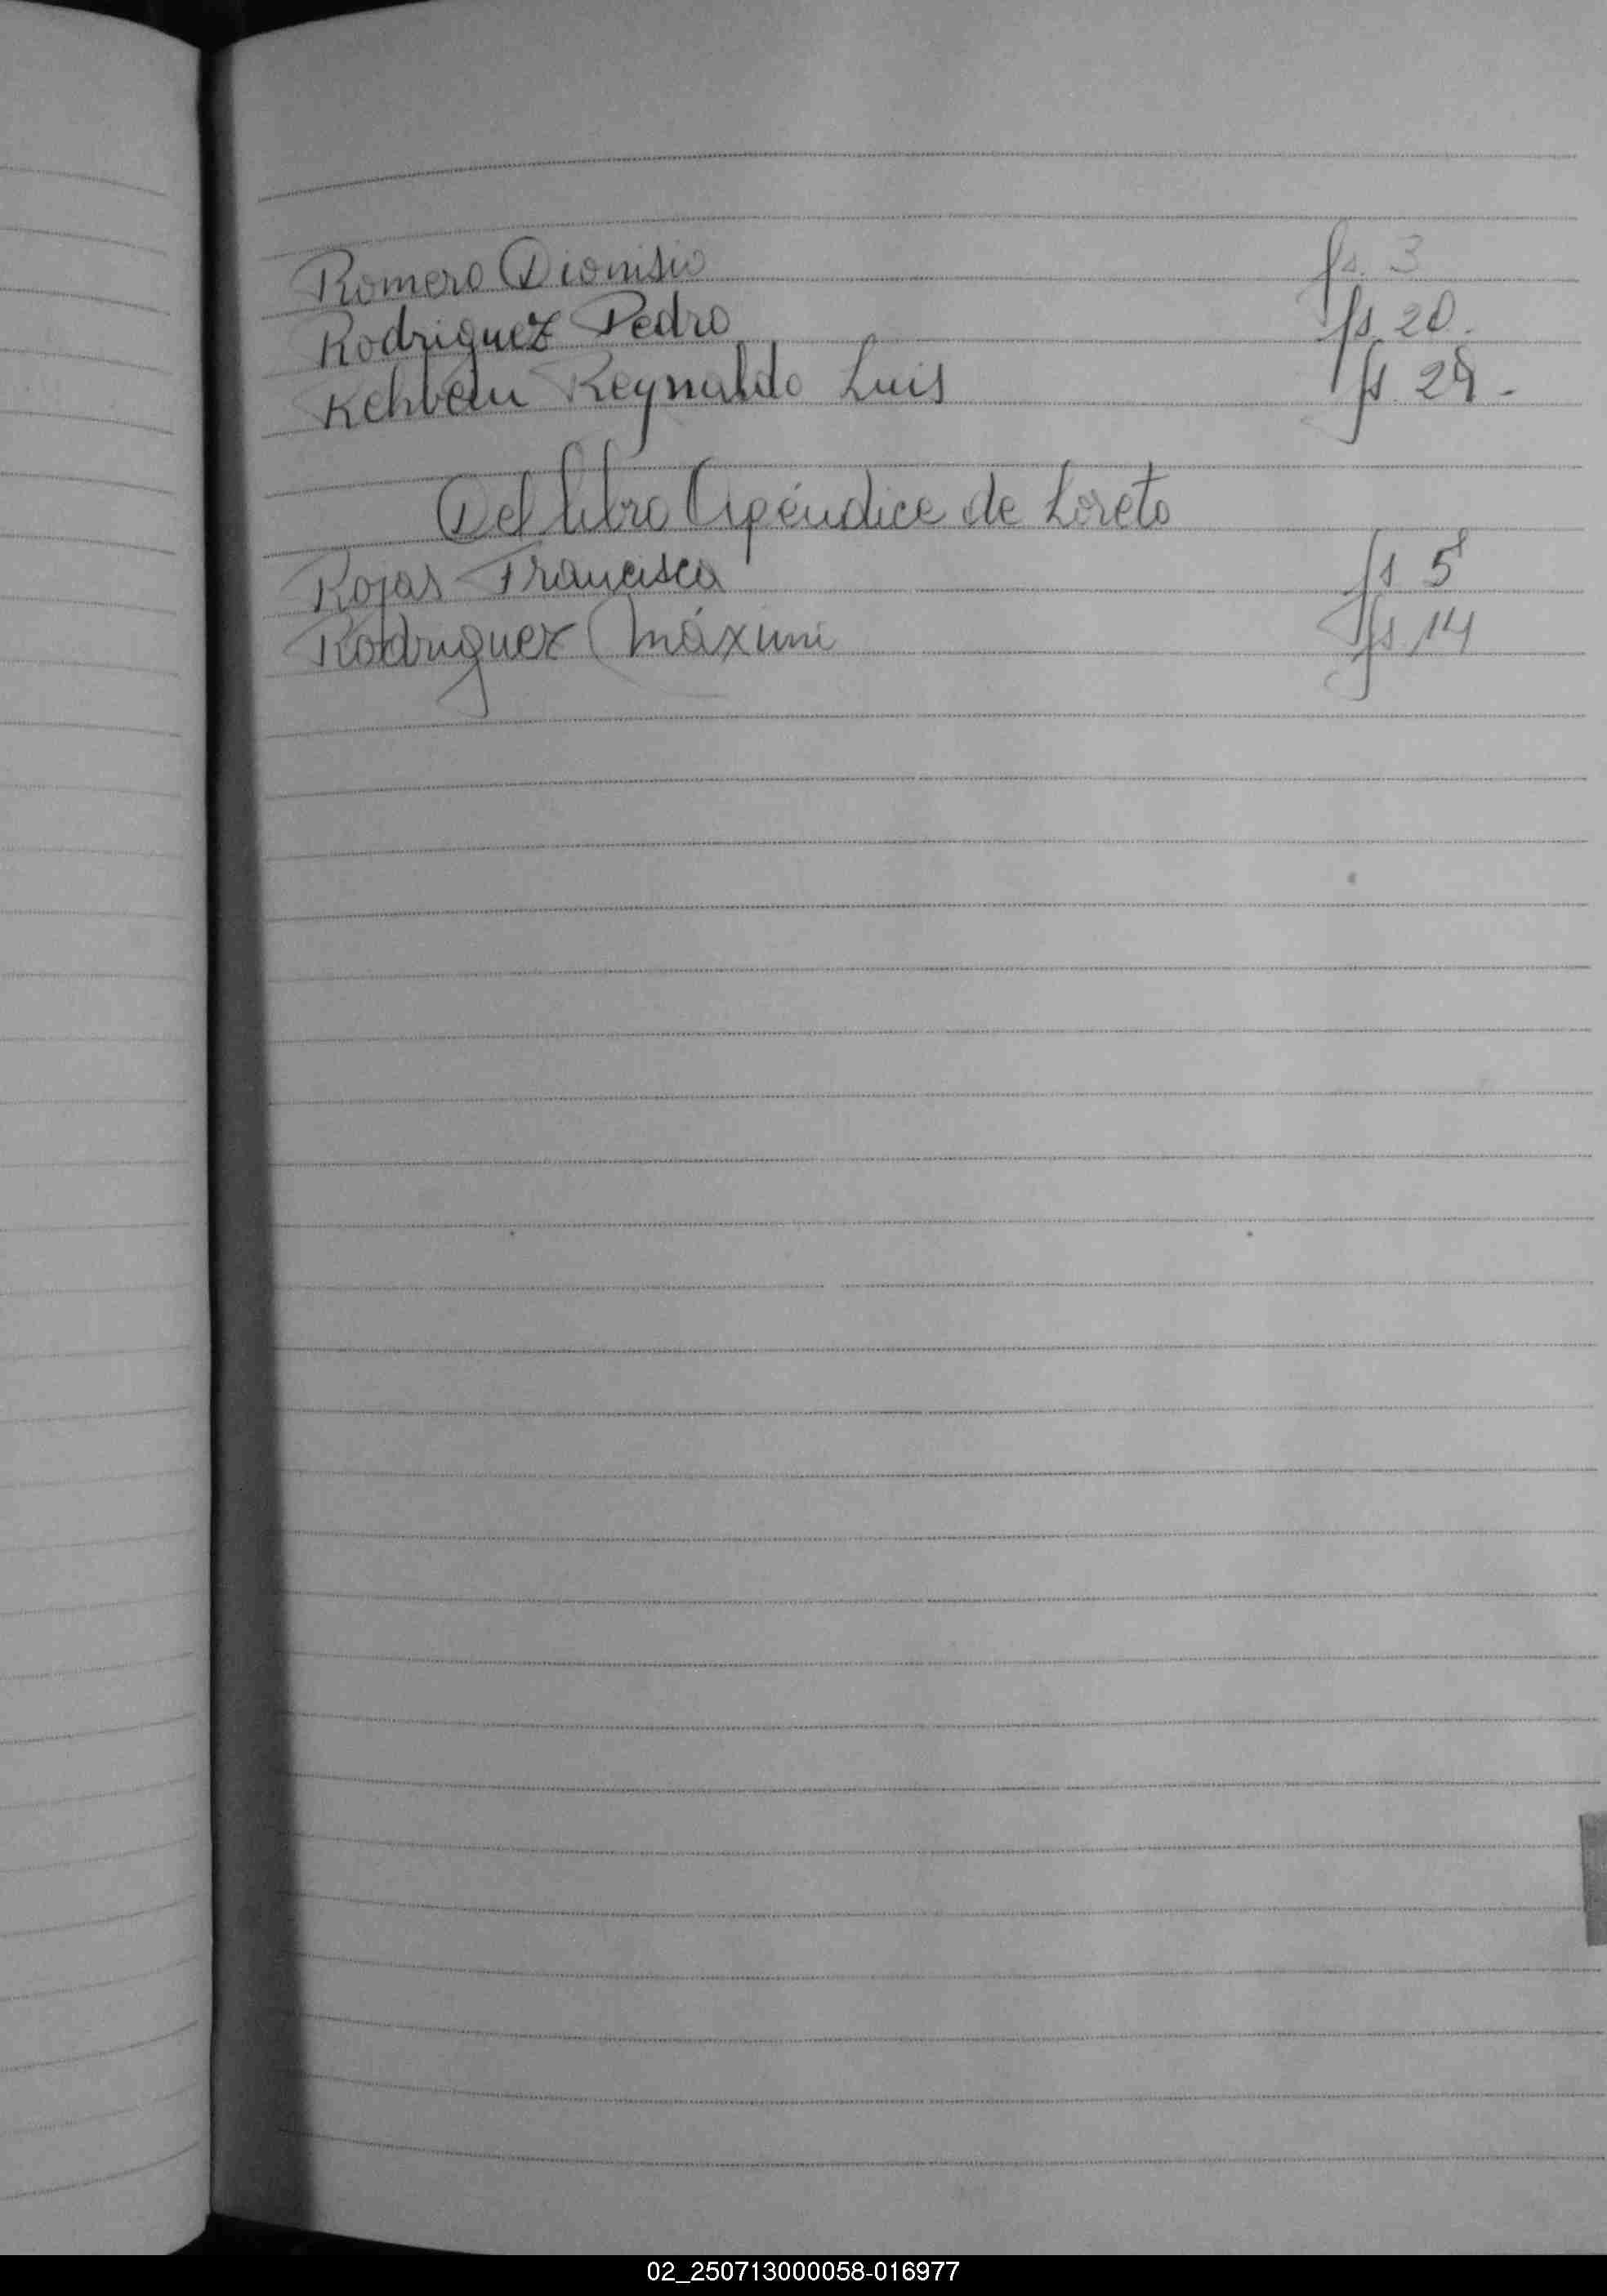 Romero Dionisio fs. 3
Rodriguez Pedro fs 20.
Rehbein Reynaldo Luis fs. 29-
Del libro Apéndice de Loreto
Rojas Francisca fs 5
Rodriguez fs 14
02_250713000058-016977